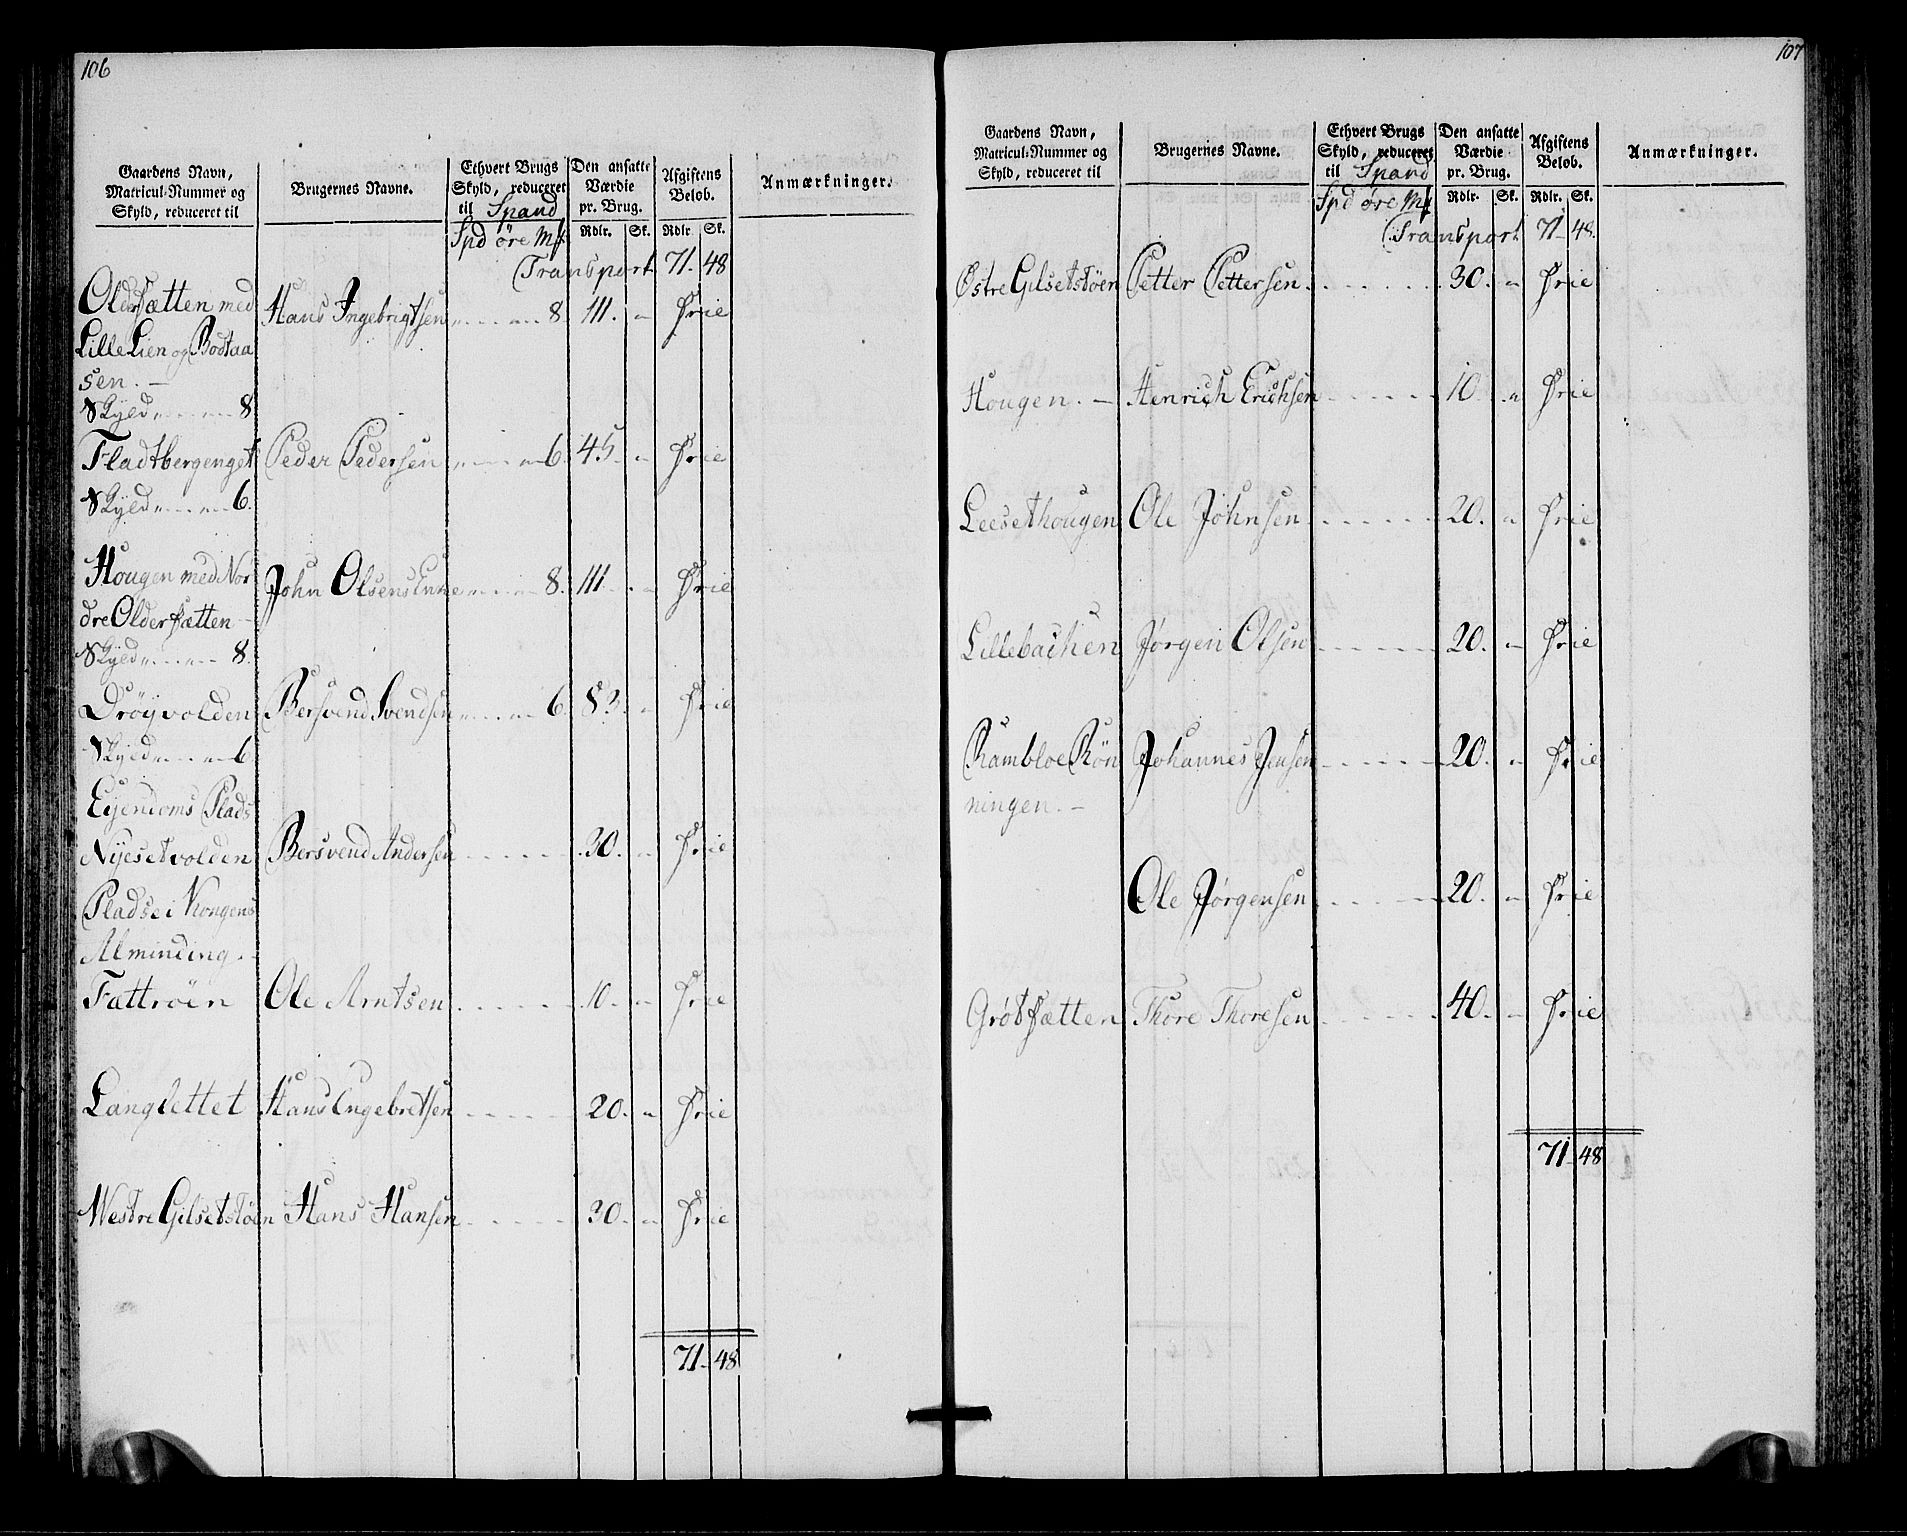 106
Gaardens Navn, Matricul-Nummer og Skyld, reduceret til
Brugernes Navne.
Ethvert Brugs Skyld, reduceret til Spand
Den ansatte Værdie pr. Brug.
Afgiftens Beløb.
Anmærkninger.
Spd öre Mk Rdlr. Sk. Rdlr. Sk.
Transport 71. 48
Oldersætten med Hans Ingebrigtsen „ - - - „ - 8. 111. „ Frie
Lille Lien og Bodtaa
sen. -
Skyld „ - - - „ - 8
Fladtbergenget Peder Pedersen „ - - - „ - 6. 45. „ Frie
Skyld „ - - - „ - 6.
Hougen med Nor John Olsens Enne „ - - - „ - 8. 111. „ Frie
dre Oldersætten -
Skyld „ - - - „ - 8.
Dröyvolden Bersvend Svendsen „ - - - „ - 6. 83. „ Frie
Skyld „ - - - „ - 6
Eijendoms Plads
Nyesetvolden Bersvend Andersen - - - - - 30. „ Frie
Pladse i Kongens
Alminding. -
Fættröen Ole Arntsen - - - - - 10. „ Frie
Langlettet Hans Ingebretsen - - - - - 20. „ Frie
Westre Gilsetstöen Hans Hansen - - - - - 30. „ Frie
71. 48
107
Gaardens Navn, Matricul-Nummer og Skyld, reduceret til
Brugernes Navne.
Ethvert Brugs Skyld, reduceret til Spand
Den ansatte Værdie pr. Brug.
Afgiftens Beløb.
Anmærkninger.
Spd öre Mk Rdlr. Sk. Rdlr. Sk.
Transport 71. 48.
Østre Gilsetstöen Petter Pettersen - - - - - 30. „ Frie
Hougen. - Henrich Erichsen - - - - - 10. „ Frie
Leesethougen Ole Johnsen - - - - - 20. „ Frie
Lillebachen Jørgen Olsen - - - - - 20. „ Frie
Rambloe Rön Johannes Jensen - - - - - 20. „ Frie
ningen. -
Ole Jørgensen - - - - - 20. „ Frie
Grötsætten Thore Thoresen - - - - - 40. „ Frie
71. 48